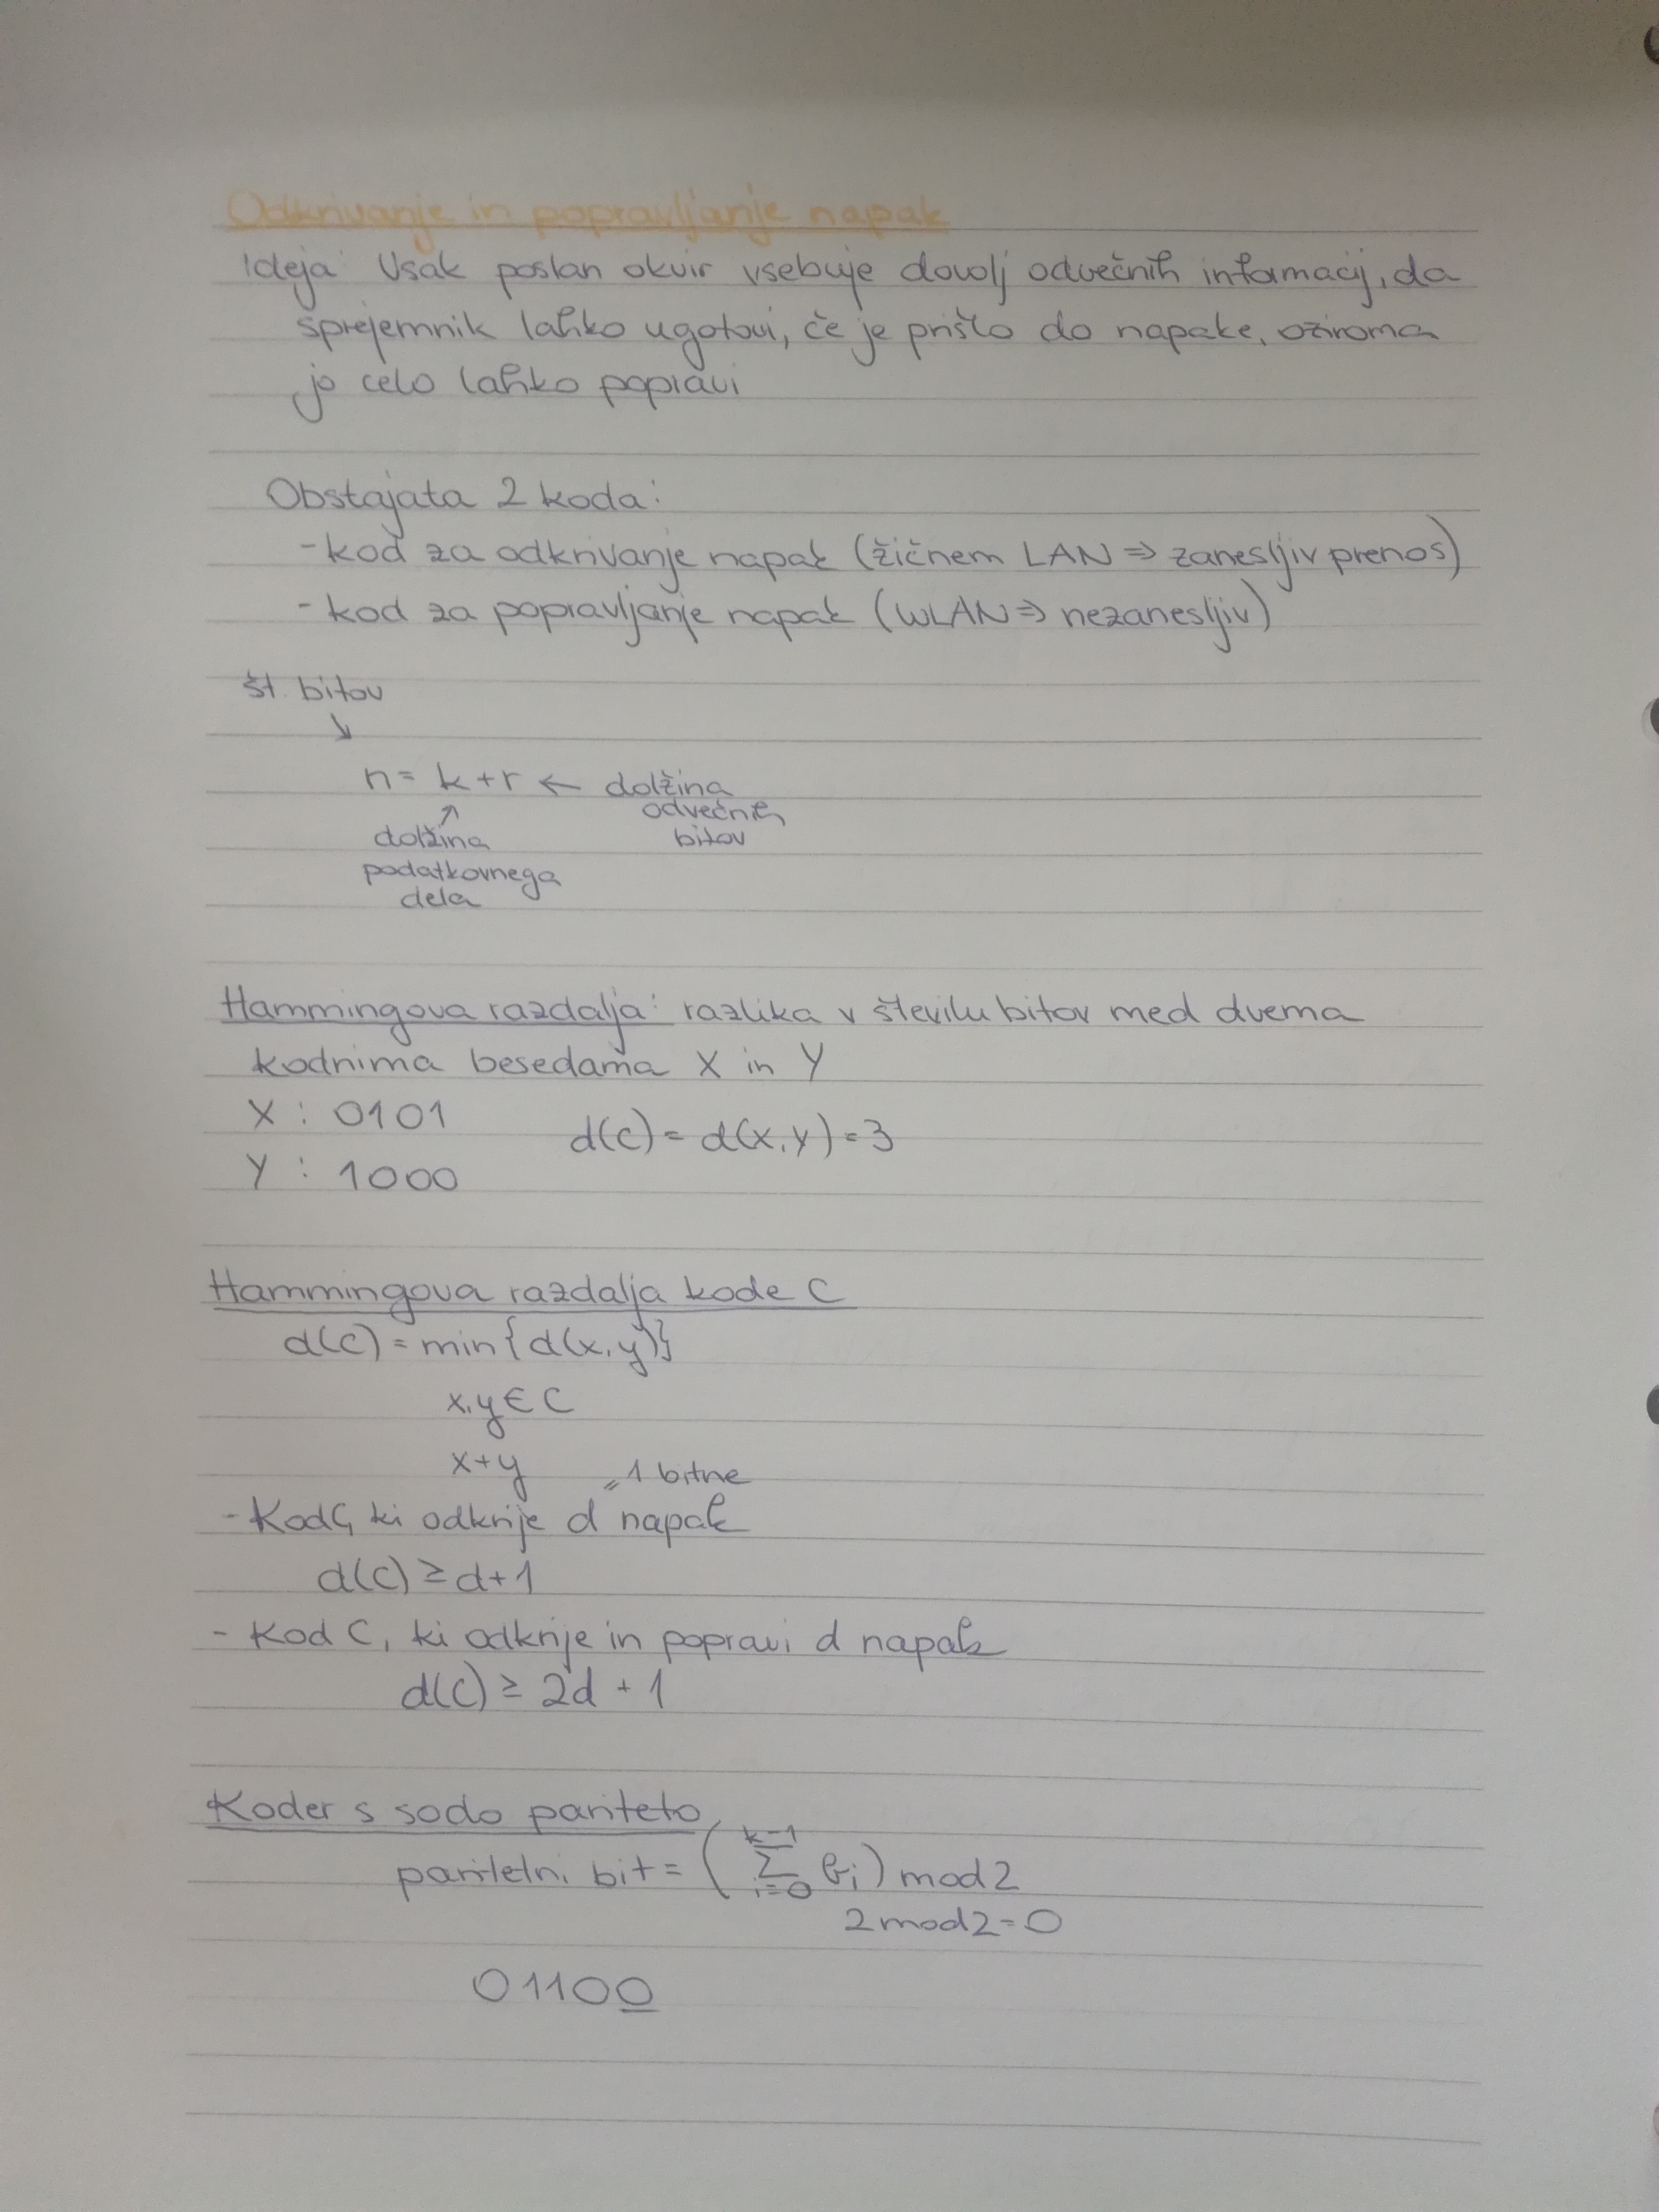 Odkrivanje in popravljanje napak
Ideja: Vsak poslan okvir vsebuje dovolj odvečnih informacij, da
sprejemnik lahko ugotovi, če je prišlo do napake, oziroma
jo celo lahko popravi
Obstajata 2 koda:
- kod za odkrivanje napak (žičnem LAN => zanesljiv prenos)
- kod za popravljanje napak (WLAN => nezanesljiv)
št. bitov
↘
n = k + r ← dolžina
odvečnih
bitov
↗
dolžina
podatkovnega
dela
Hammingova razdalja: razlika v številu bitov med dvema
kodnima besedama X in Y
X : 0101
d(C) = d(x,y) = 3
Y : 1000
Hammingova razdalja kode C
d(C) = min{d(x,y)}
x,y ∈ C
x+y
1 bitne
- Kod C, ki odkrije d napak
d(C) ≥ d+1
- Kod C, ki odkrije in popravi d napak
d(C) ≥ 2d + 1
Koder s sodo pariteto
paritetni bit = (∑_{i=0}^{k-1} b_i) mod 2
2 mod 2 = 0
01100